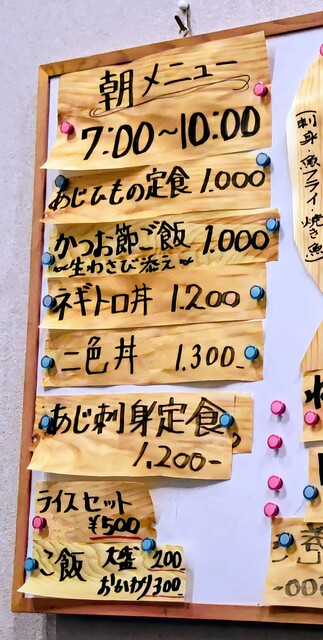 朝メニュー
7:00~10:00
あじひもの定食 1.000
かつお節ご飯 1.000
~生わさび添え~
ネギトロ丼 1.200
二色丼 1.300-
あじ刺身定食
1,200-
ライスセット
¥500
ご飯 大盛 200
おかわり300
(刺身・魚フライ・焼き魚)